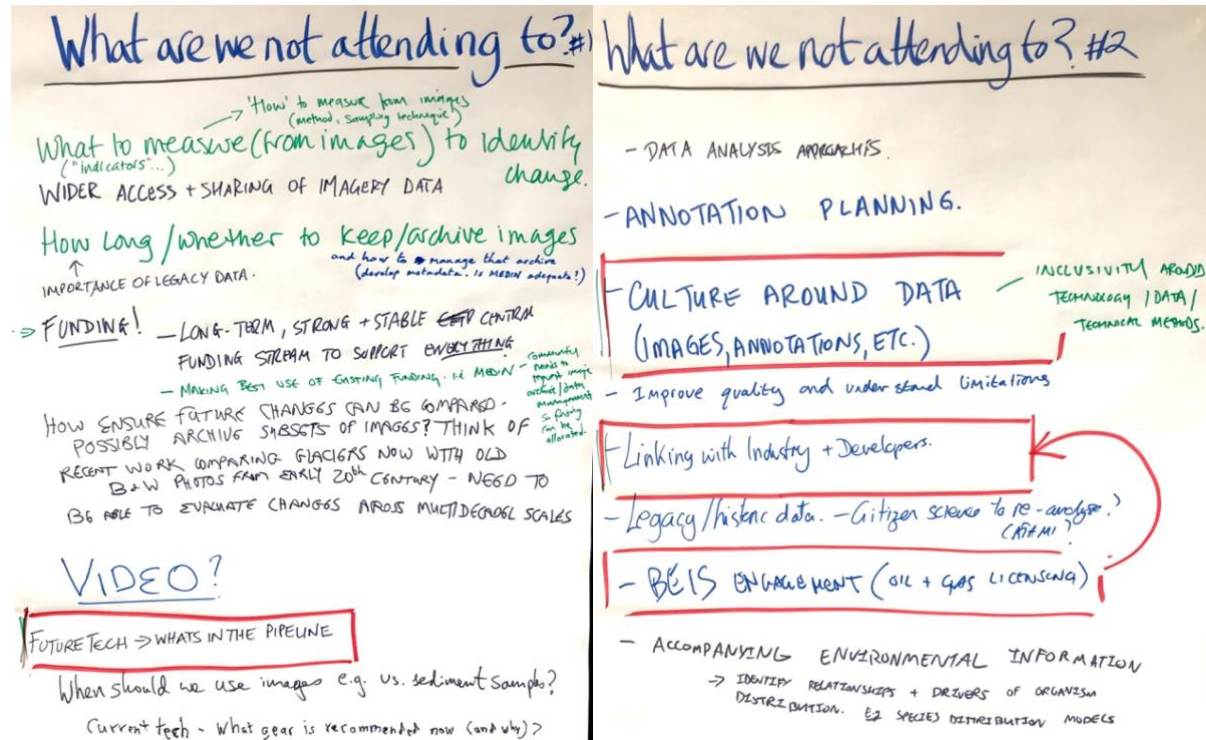 What are we not attending to? #1
'How' to measure from images
(method, sampling technique)
What to measure (from images) to identify
("indicators"...)
change.
WIDER ACCESS + SHARING OF IMAGERY DATA
How long / whether to keep/archive images
and how to manage that archive
(develop metadata. Is MEDIN adequate?)
IMPORTANCE OF LEGACY DATA.
FUNDING! - LONG-TERM, STRONG + STABLE CENTRAL
FUNDING STREAM TO SUPPORT EVERYTHING
- MAKING BEST USE OF EXISTING FUNDING. IE MEDIN -
community
needs to
request image
archive/data
management
so funding
can be
allocated.
HOW ENSURE FUTURE CHANGES CAN BE COMPARED.
POSSIBLY ARCHIVE SUBSETS OF IMAGES? THINK OF
RECENT WORK COMPARING GLACIERS NOW WITH OLD
B+W PHOTOS FROM EARLY 20th CENTURY - NEED TO
BE ABLE TO EVALUATE CHANGES AROSS MULTIDECADEL SCALES
VIDEO?
FUTURE TECH → WHATS IN THE PIPELINE
When should we use images e.g. vs. sediment samples?
Current tech - What gear is recommended now (and why)?
What are we not attending to? #2
- DATA ANALYSIS APPROACHES.
- ANNOTATION PLANNING.
- CULTURE AROUND DATA
(IMAGES, ANNOTATIONS, ETC.)
INCLUSIVITY AROUND
TECHNOLOGY / DATA /
TECHNICAL METHODS.
- Improve quality and understand limitations
- Linking with Industry + Developers.
- Legacy/historic data. - Citizen science to re-analyse?
- BEIS ENGAGEMENT (OIL + GAS LICENSING)
- ACCOMPANYING ENVIRONMENTAL INFORMATION
→ IDENTIFY RELATIONSHIPS + DRIVERS OF ORGANISM
DISTRIBUTION. EG SPECIES DISTRIBUTION MODELS